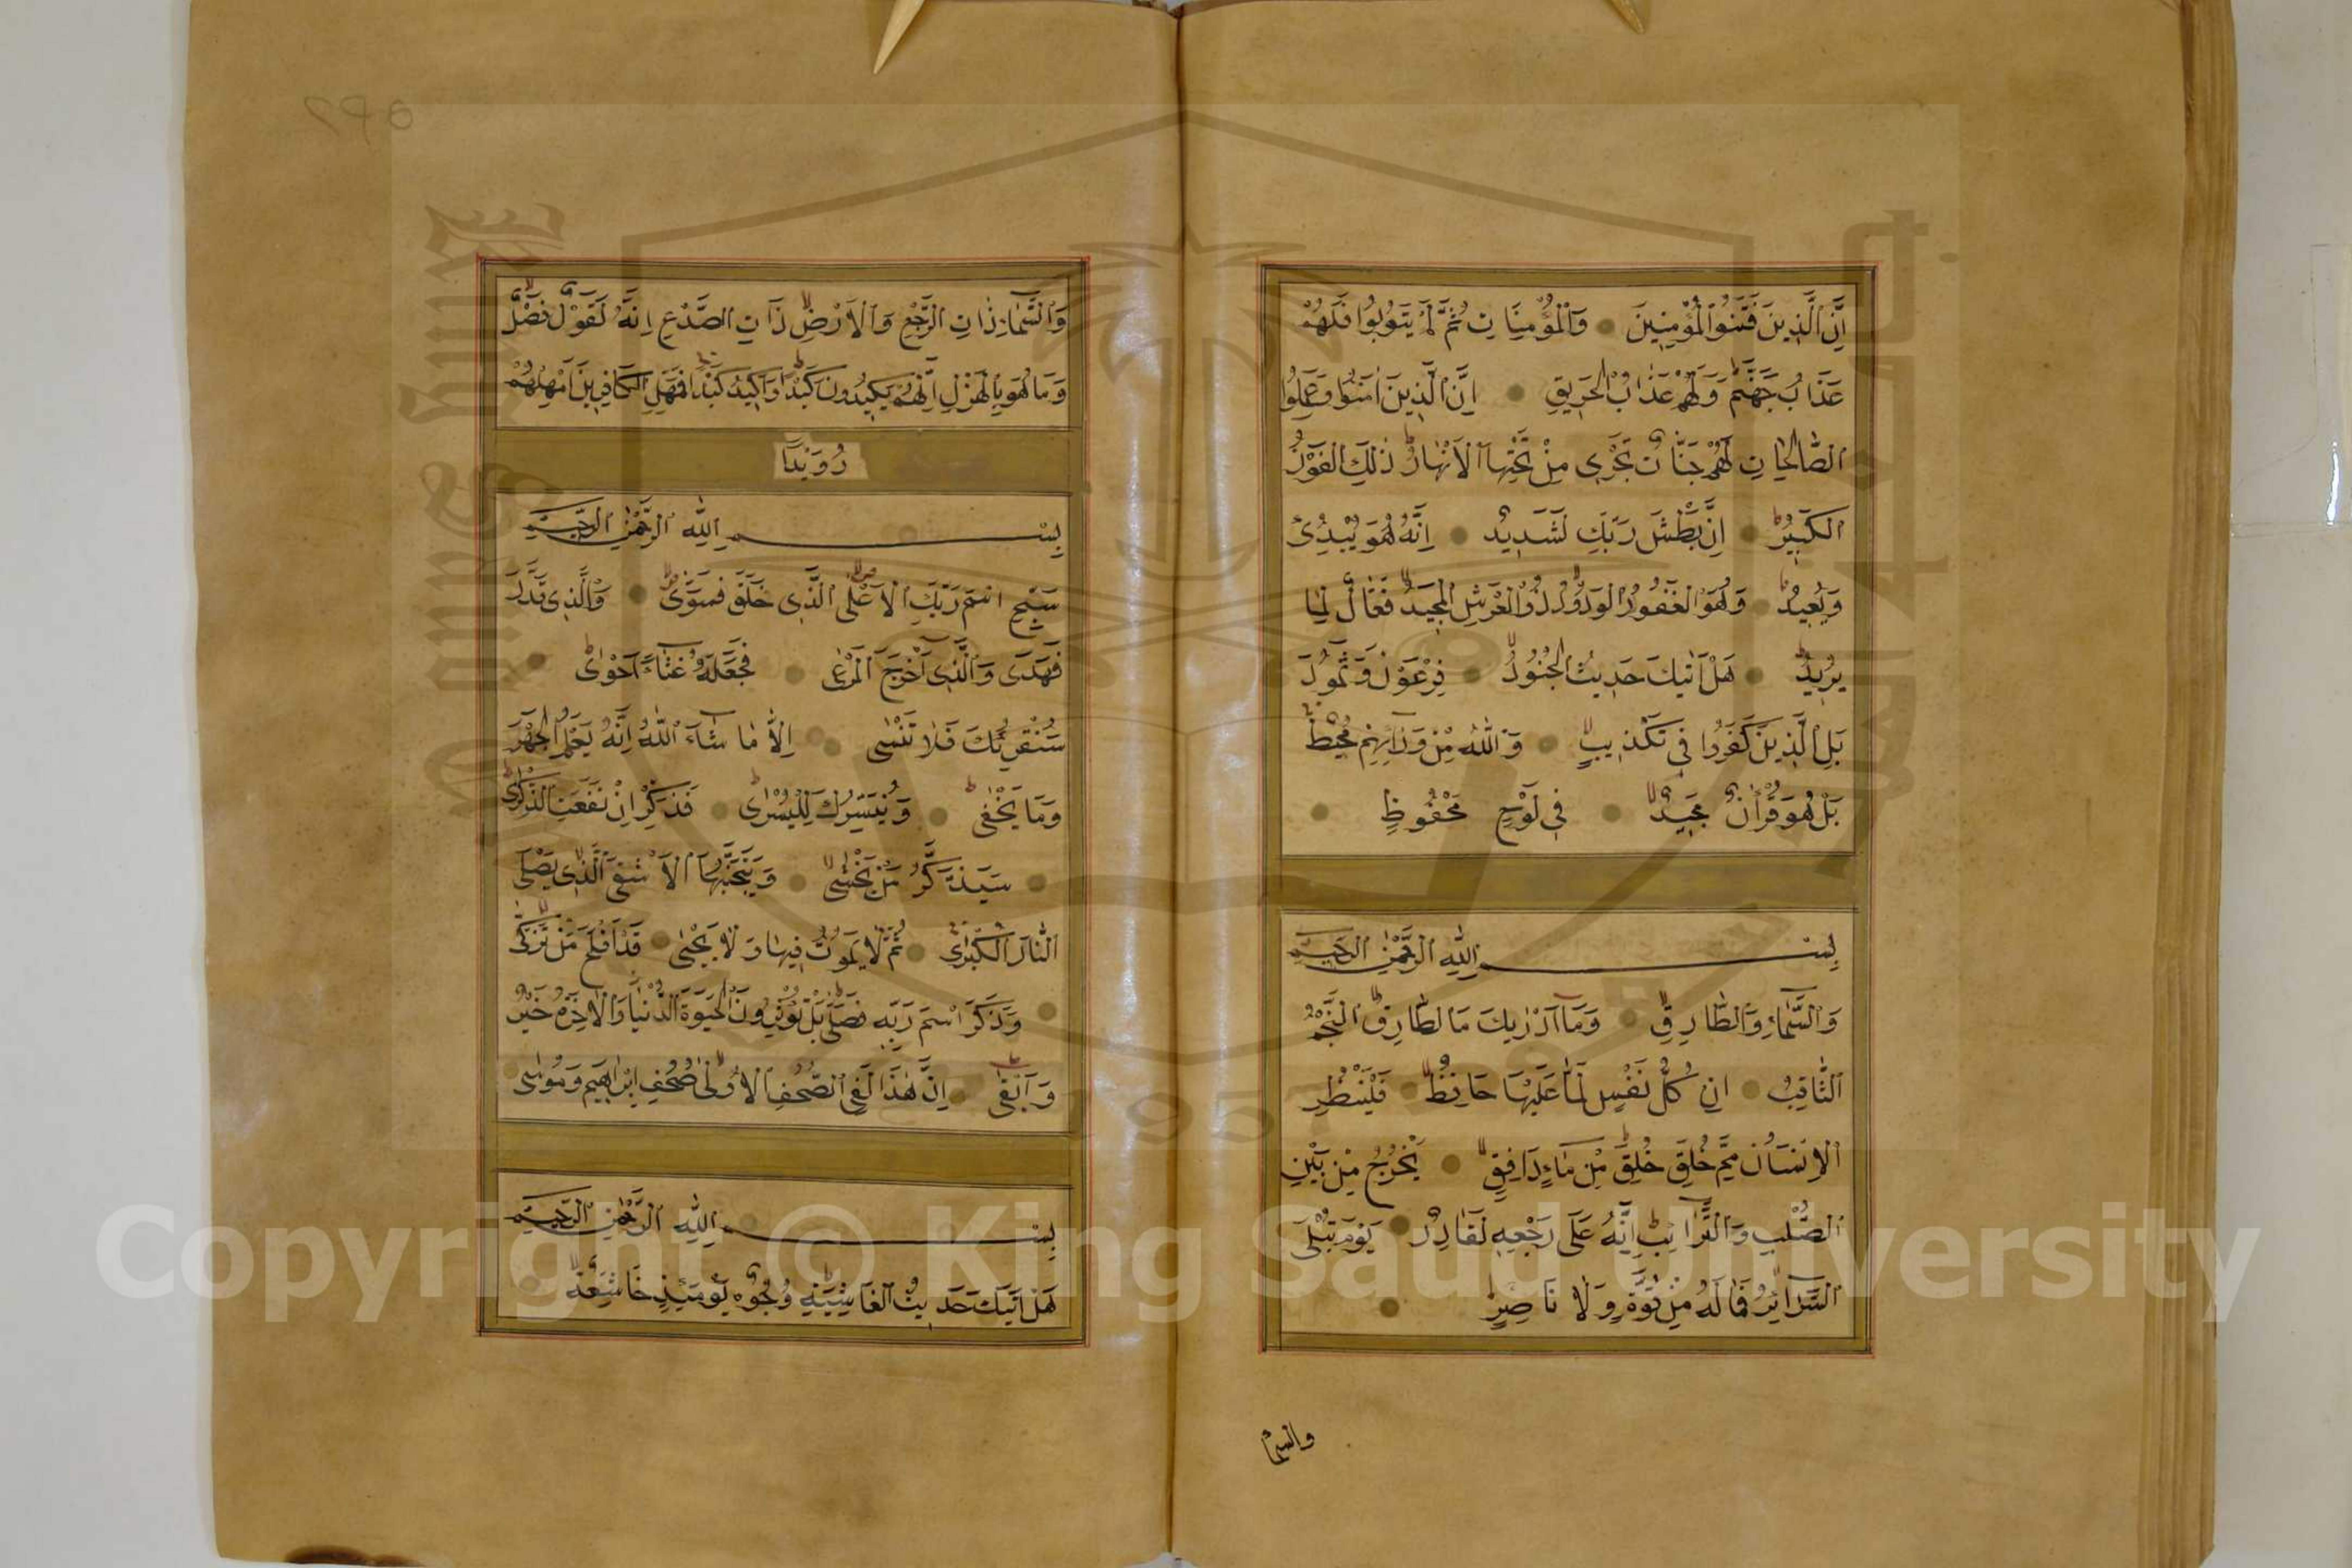 اِنَّ الَّذِينَ فَتَنُوا الْمُؤْمِنِينَ وَالْمُؤْمِنَاتِ ثُمَّ لَمْ يَتُوبُوا فَلَهُمْ
عَذَابُ جَهَنَّمَ وَلَهُمْ عَذَابُ الْحَرِيقِ اِنَّ الَّذِينَ اٰمَنُوا وَعَمِلُوا
الصَّالِحَاتِ لَهُمْ جَنَّاتٌ تَجْرِى مِنْ تَحْتِهَا الْاَنْهَارُ ذٰلِكَ الْفَوْزُ
الْكَبِيرُ اِنَّ بَطْشَ رَبِّكَ لَشَدِيدٌ اِنَّهُ هُوَ يُبْدِئُ
وَيُعِيدُ وَهُوَ الْغَفُورُ الْوَدُودُ ذُو الْعَرْشِ الْمَجِيدُ فَعَّالٌ لِمَا
يُرِيدُ هَلْ اَتٰيكَ حَدِيثُ الْجُنُودِ فِرْعَوْنَ وَثَمُودَ
بَلِ الَّذِينَ كَفَرُوا فِى تَكْذِيبٍ وَاللّٰهُ مِنْ وَرَائِهِمْ مُحِيطٌ
بَلْ هُوَ قُرْاٰنٌ مَجِيدٌ فِى لَوْحٍ مَحْفُوظٍ
بِسْمِ اللّٰهِ الرَّحْمٰنِ الرَّحِيمِ
وَالسَّمَاءِ وَالطَّارِقِ وَمَا اَدْرٰيكَ مَا الطَّارِقُ النَّجْمُ
الثَّاقِبُ اِنْ كُلُّ نَفْسٍ لَمَّا عَلَيْهَا حَافِظٌ فَلْيَنْظُرِ
الْاِنْسَانُ مِمَّ خُلِقَ خُلِقَ مِنْ مَاءٍ دَافِقٍ يَخْرُجُ مِنْ بَيْنِ
الصُّلْبِ وَالتَّرَائِبِ اِنَّهُ عَلَى رَجْعِهِ لَقَادِرٌ يَوْمَ تُبْلَى
السَّرَائِرُ فَمَا لَهُ مِنْ قُوَّةٍ وَلَا نَاصِرٍ
والسما
وَالسَّمَاءِ ذَاتِ الرَّجْعِ وَالْاَرْضِ ذَاتِ الصَّدْعِ اِنَّهُ لَقَوْلٌ فَصْلٌ
وَمَا هُوَ بِالْهَزْلِ اِنَّهُمْ يَكِيدُونَ كَيْدًا وَاَكِيدُ كَيْدًا فَمَهِّلِ الْكَافِرِينَ اَمْهِلْهُمْ
رُوَيْدًا
بِسْمِ اللّٰهِ الرَّحْمٰنِ الرَّحِيمِ
سَبِّحِ اسْمَ رَبِّكَ الْاَعْلَى الَّذِى خَلَقَ فَسَوّٰى وَالَّذِى قَدَّرَ
فَهَدَى وَالَّذِى اَخْرَجَ الْمَرْعٰى فَجَعَلَهُ غُثَاءً اَحْوٰى
سَنُقْرِئُكَ فَلَا تَنْسٰى اِلَّا مَا شَاءَ اللّٰهُ اِنَّهُ يَعْلَمُ الْجَهْرَ
وَمَا يَخْفٰى وَنُيَسِّرُكَ لِلْيُسْرٰى فَذَكِّرْ اِنْ نَفَعَتِ الذِّكْرٰى
سَيَذَّكَّرُ مَنْ يَخْشٰى وَيَتَجَنَّبُهَا الْاَشْقَى الَّذِى يَصْلَى
النَّارَ الْكُبْرٰى ثُمَّ لَا يَمُوتُ فِيهَا وَلَا يَحْيٰى قَدْ اَفْلَحَ مَنْ تَزَكّٰى
وَذَكَرَ اسْمَ رَبِّهِ فَصَلّٰى بَلْ تُؤْثِرُونَ الْحَيٰوةَ الدُّنْيَا وَالْاٰخِرَةُ خَيْرٌ
وَاَبْقٰى اِنَّ هٰذَا لَفِى الصُّحُفِ الْاُولٰى صُحُفِ اِبْرٰهِيمَ وَمُوسٰى
بِسْمِ اللّٰهِ الرَّحْمٰنِ الرَّحِيمِ
هَلْ اَتٰيكَ حَدِيثُ الْغَاشِيَةِ وُجُوهٌ يَوْمَئِذٍ خَاشِعَةٌ
Copyright © King Saud University
1957